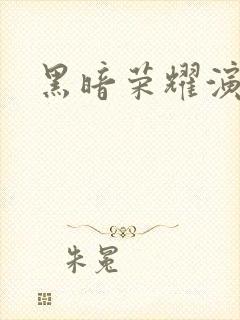 黑暗荣耀演
朱冕